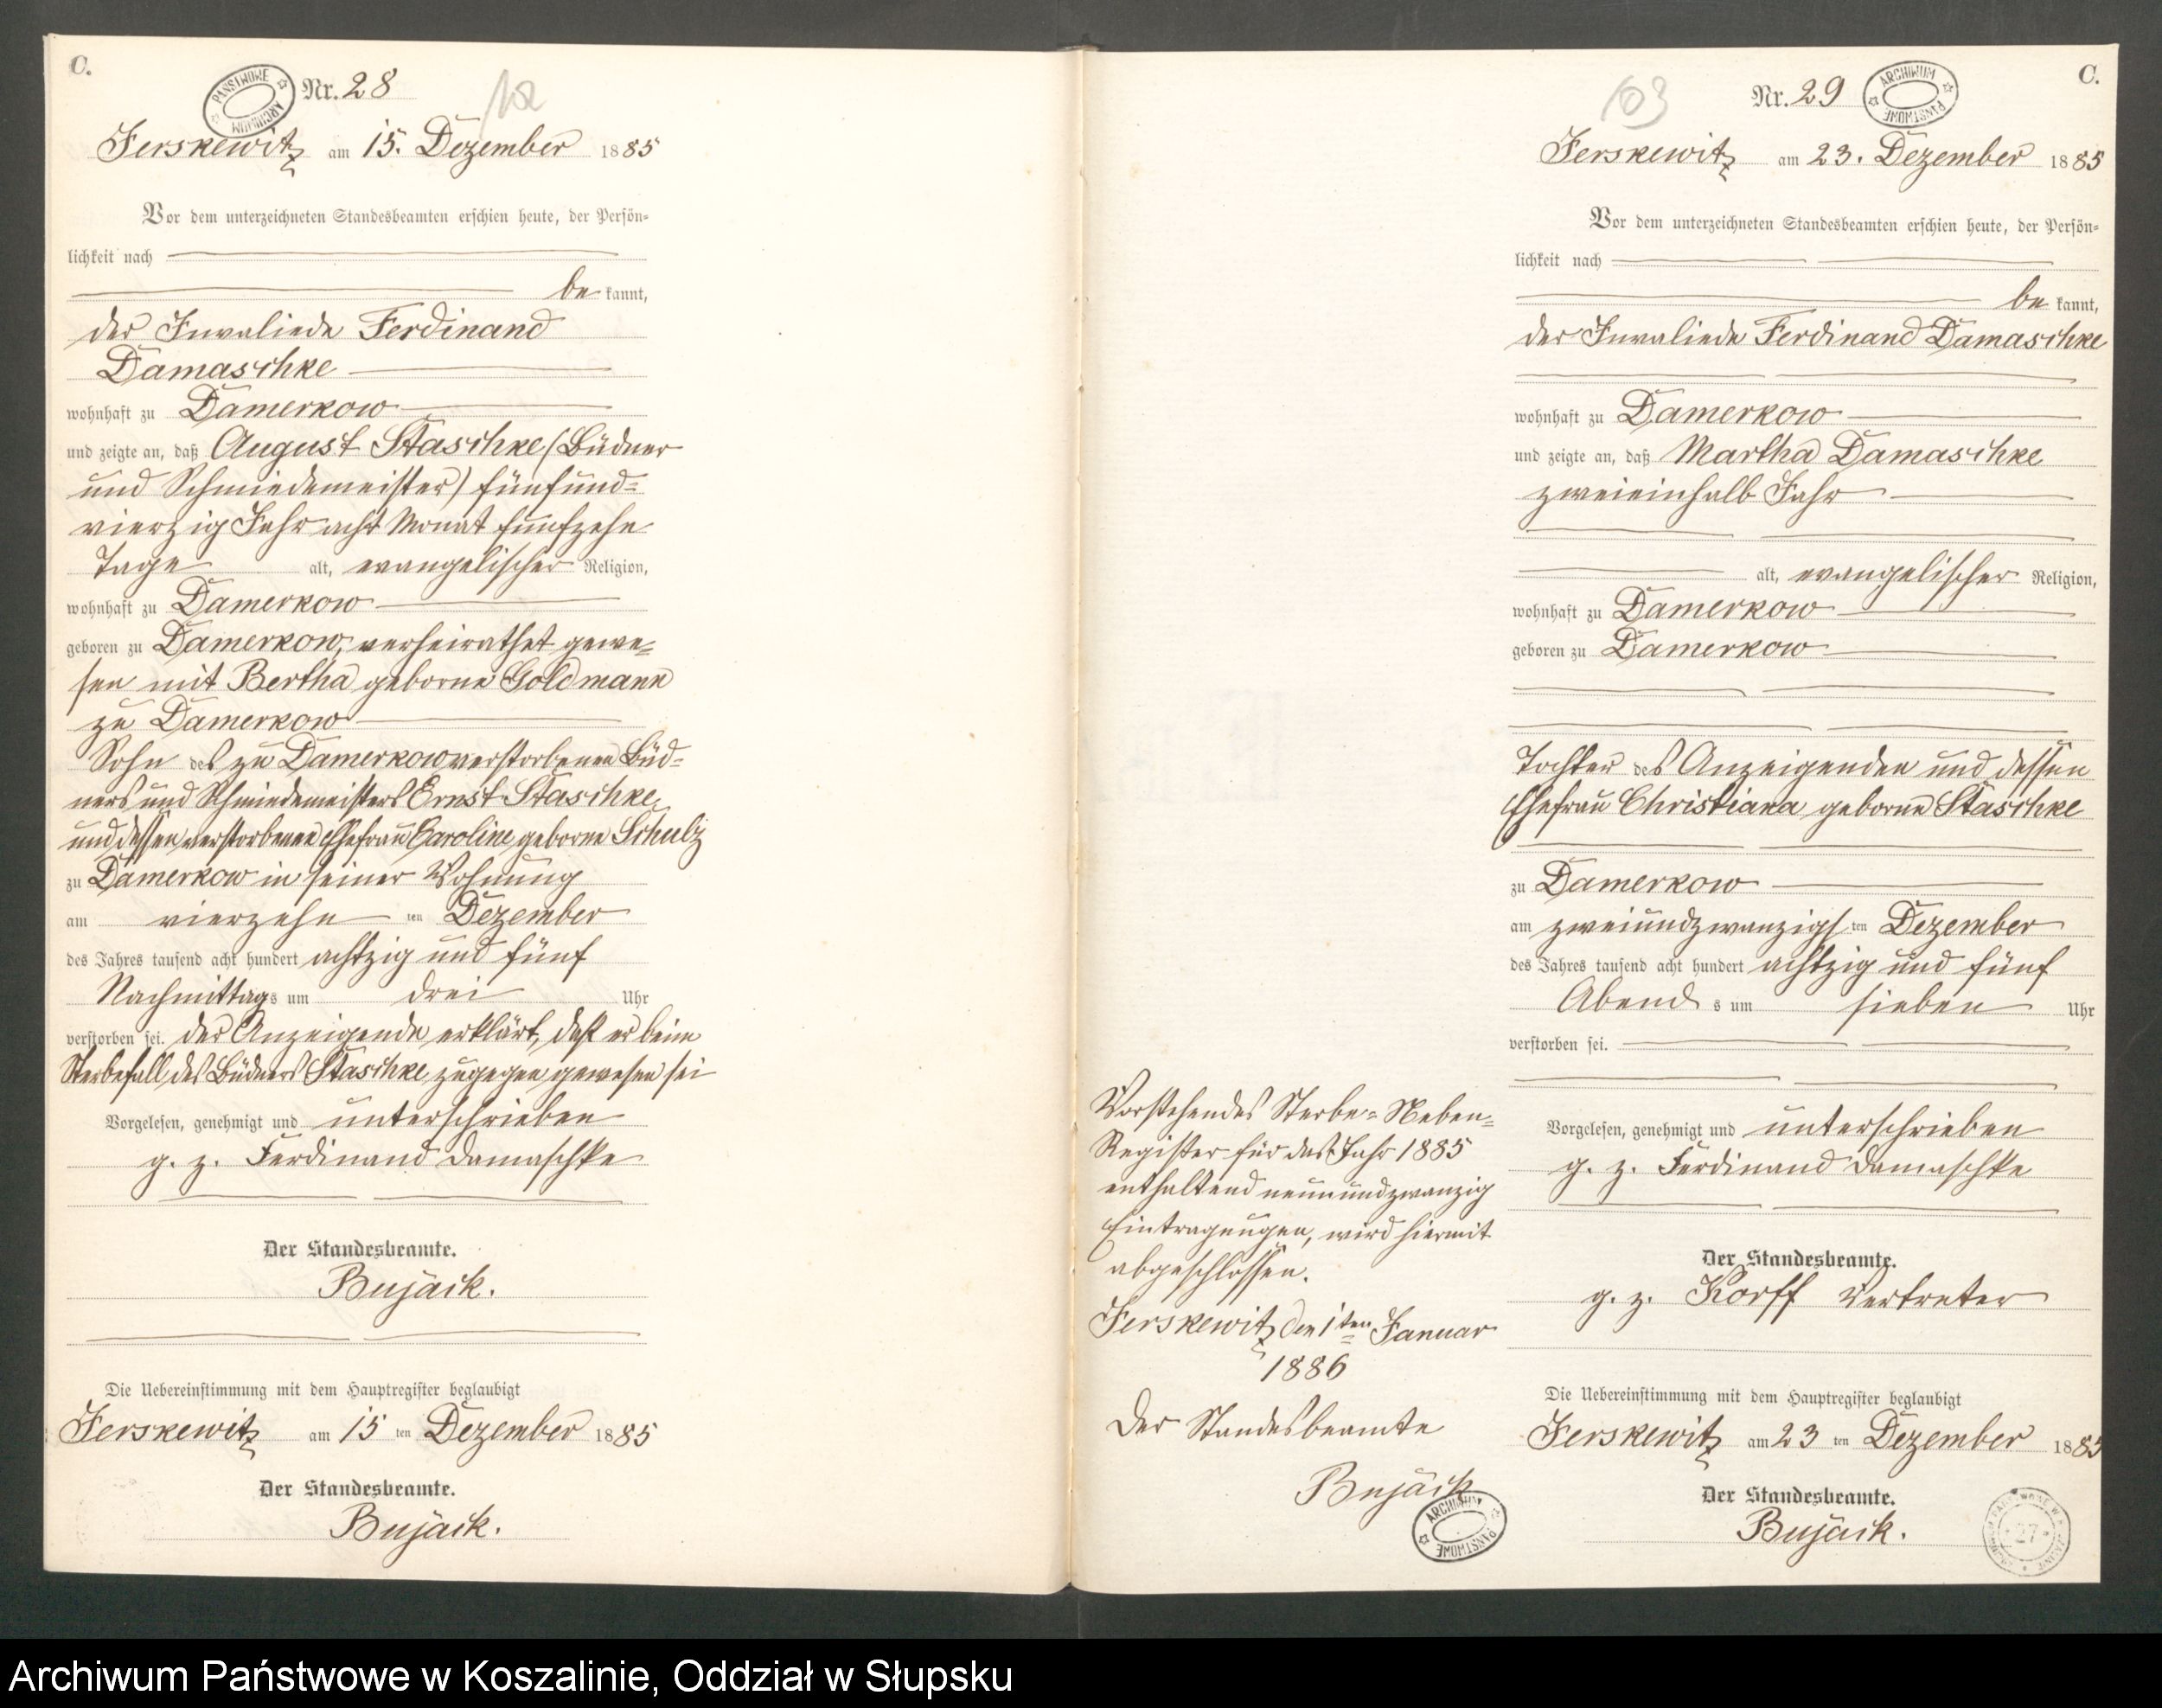 C.
Nr. 28
102
Jerskewitz am 15. Dezember 1885
Vor dem unterzeichneten Standesbeamten erschien heute, der Persön-
lichkeit nach
be kannt,
der Invaliede Ferdinand
Damaschke
wohnhaft zu Damerkow
und zeigte an, daß August Staschke (Büdner
und Schmiedemeister) fünfund-
vierzig Jahr acht Monat fünfzehn
Tage alt, evangelischer Religion,
wohnhaft zu Damerkow
geboren zu Damerkow, verheirathet gewe-
sen mit Bertha geborne Goldmann
zu Damerkow
Sohn des zu Damerkow verstorbenen Büd-
ners und Schmiedemeisters Ernst Staschke,
und dessen verstorbenen Ehefrau Caroline, geborne Schulz
zu Damerkow in seiner Wohnung
am vierzehn ten Dezember
des Jahres tausend acht hundert achtzig und fünf
Nachmittags um drei Uhr
verstorben sei. der Anzeigende erklärt, daß er beim
Sterbefall des Büdners Staschke zugegen gewesen sei
Vorgelesen, genehmigt und unterschrieben
g. z. Ferdinand Damaschke
Der Standesbeamte.
Bujack.
Die Uebereinstimmung mit dem Hauptregister beglaubigt
Jerskewitz am 15 ten Dezember 1885
Der Standesbeamte.
Bujack.
Vorstehendes Sterbe-Neben-
Register für das Jahr 1885
enthaltend neunundzwanzig
Eintragungen, wird hiermit
abgeschlossen.
Jerskewitz den 1ten Januar
1886
Der Standesbeamte
Bujack
ARCHIWUM PAŃSTWOWE
C.
103
Nr. 29
ARCHIWUM PAŃSTWOWE
Jerskewitz am 23. Dezember 1885
Vor dem unterzeichneten Standesbeamten erschien heute, der Persön-
lichkeit nach
be kannt,
der Invaliede Ferdinand Damaschke
wohnhaft zu Damerkow
und zeigte an, daß Martha Damaschke
zweieinhalb Jahr
alt, evangelischer Religion,
wohnhaft zu Damerkow
geboren zu Damerkow
Tochter des Anzeigenden und dessen
Ehefrau Christiana geborne Staschke
zu Damerkow
am zweiundzwanzigs ten Dezember
des Jahres tausend acht hundert achtzig und fünf
Abend s um sieben Uhr
verstorben sei.
Vorgelesen, genehmigt und unterschrieben
g. z. Ferdinand Damaschke
Der Standesbeamte.
g. z. Korff Vertreter
Die Uebereinstimmung mit dem Hauptregister beglaubigt
Jerskewitz am 23 ten Dezember 1885
Der Standesbeamte.
Bujack.
27
Archiwum Państwowe w Koszalinie, Oddział w Słupsku